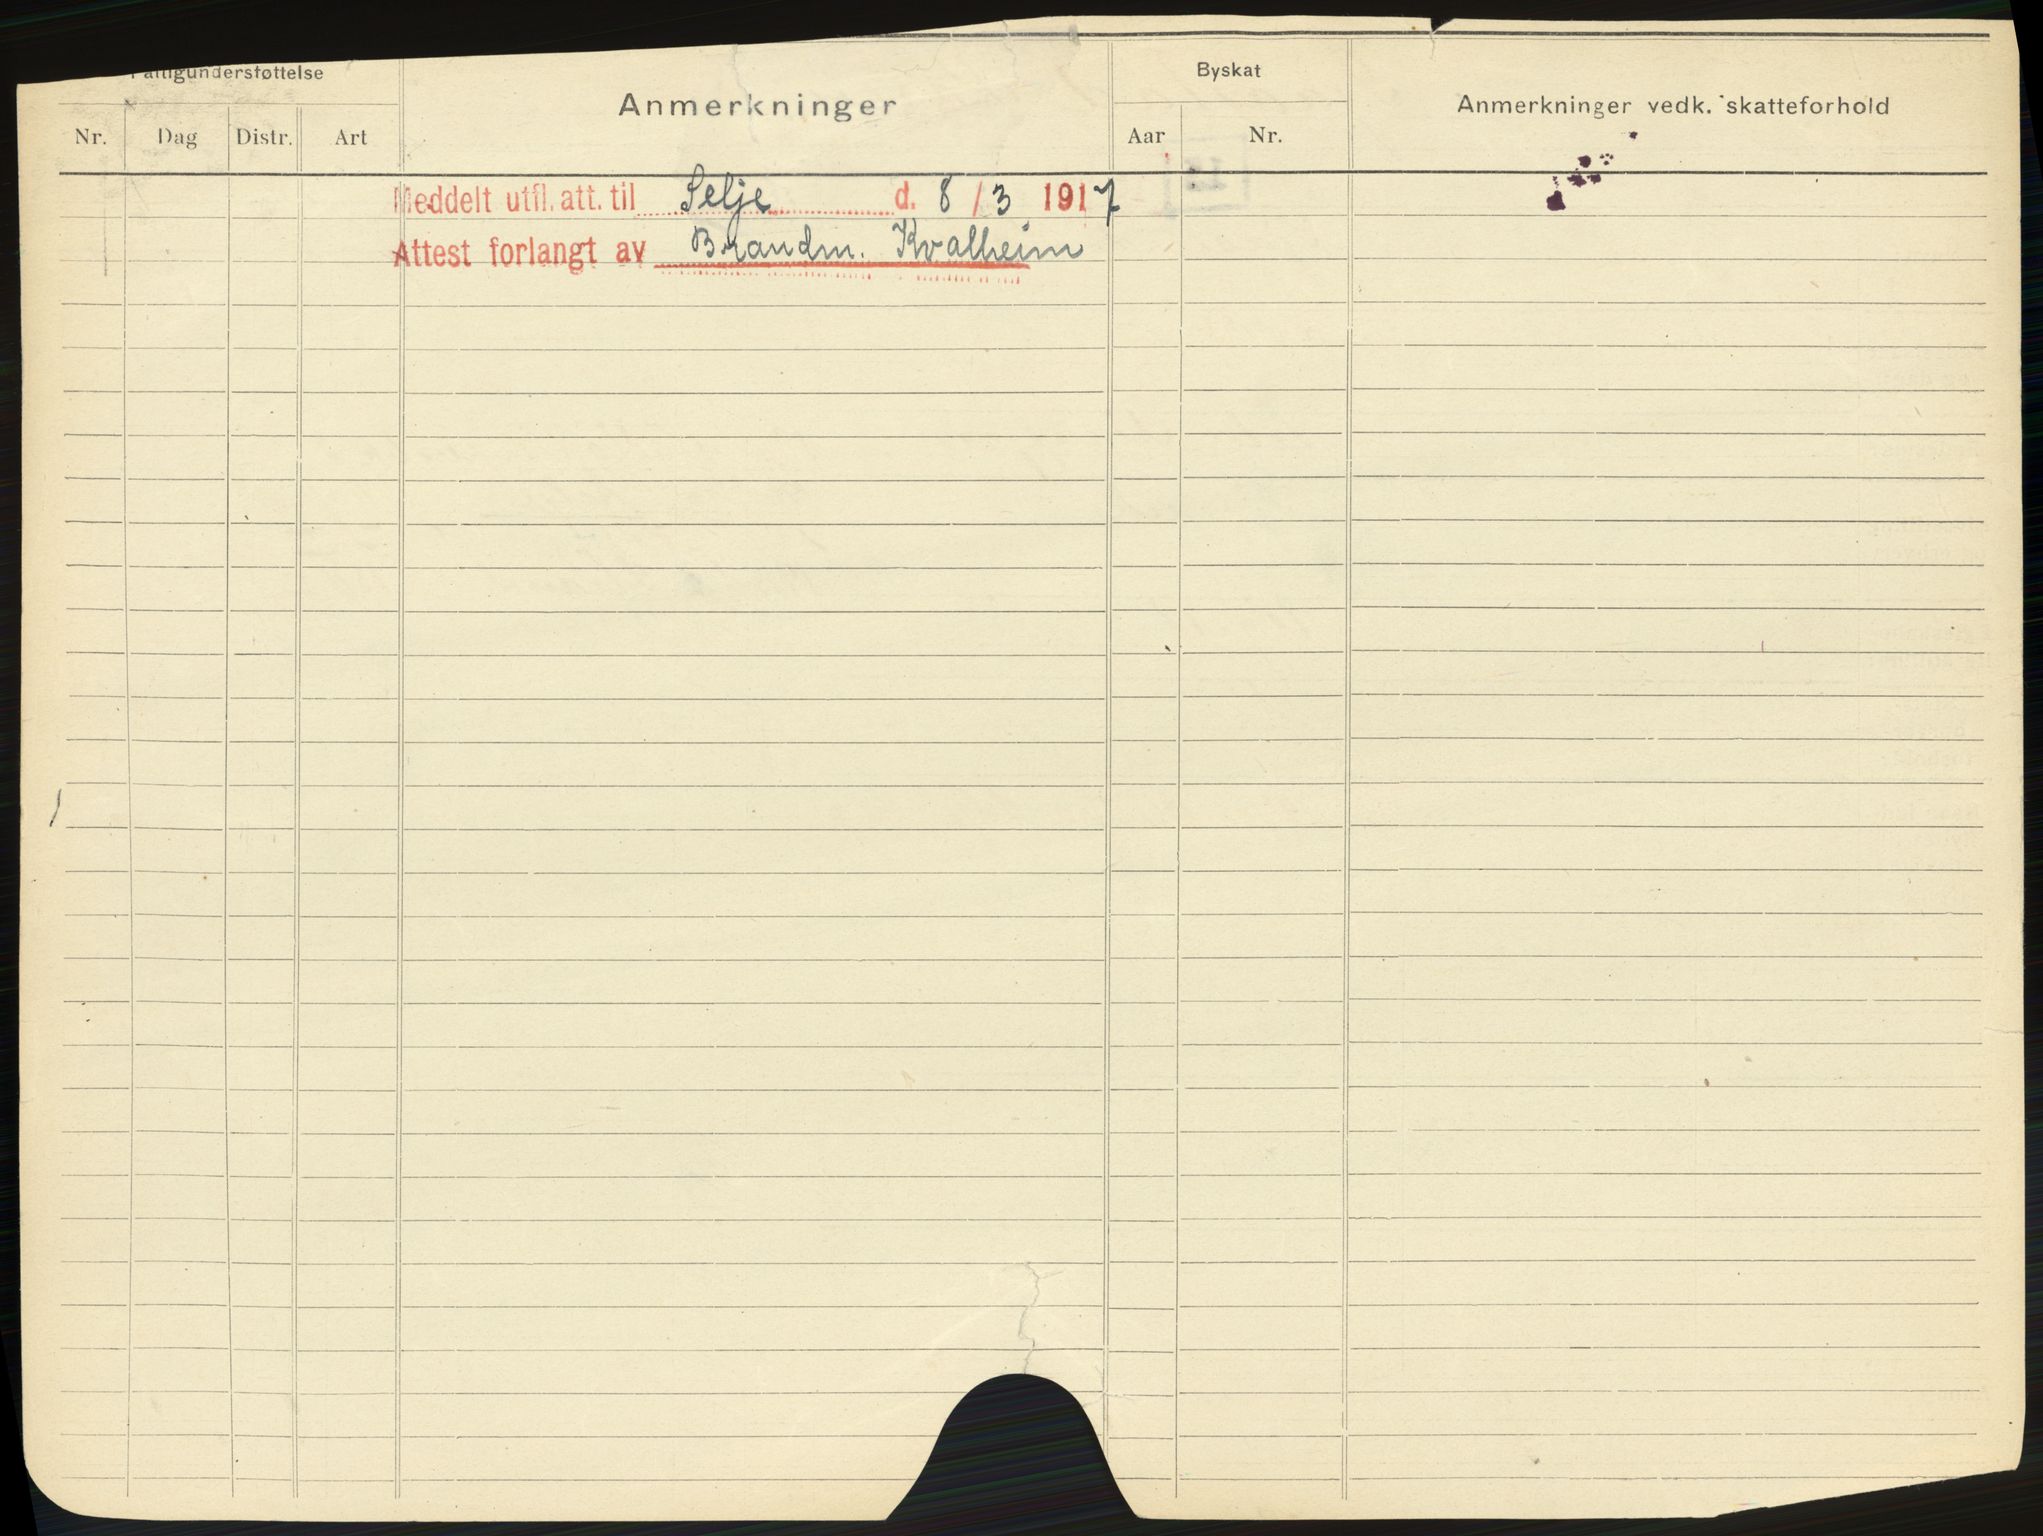 Fattigunderstøttelse
Anmerkninger
Byskat
Anmerkninger vedk. skatteforhold
Nr. Dag Distr. Art
Aar Nr.
Meddelt utfl. att. til Selje d. 8/3 1917
Attest forlangt av Brandm. Kvalheim